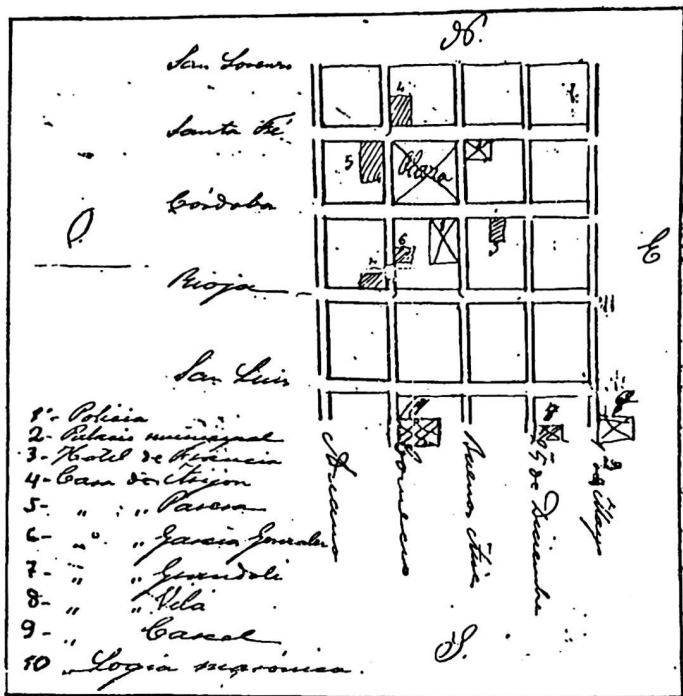 N.
San Lorenzo
Santa Fé
Córdoba
Rioja
San Luis
O
E
S.
4
5
Plaza
6
1 - Policia
2 - Palacio municipal
3 - Hotel de Provincia
4 - Casa de Arijon
5 - " " Parera
6 - " " Garcia Gonzales
7 - " " Grandoli
8 - " " Vila
9 - " Carcel
10 " Logia masónica.
Comercio
Buenos Aires
15 de Diciembre
25 de Mayo